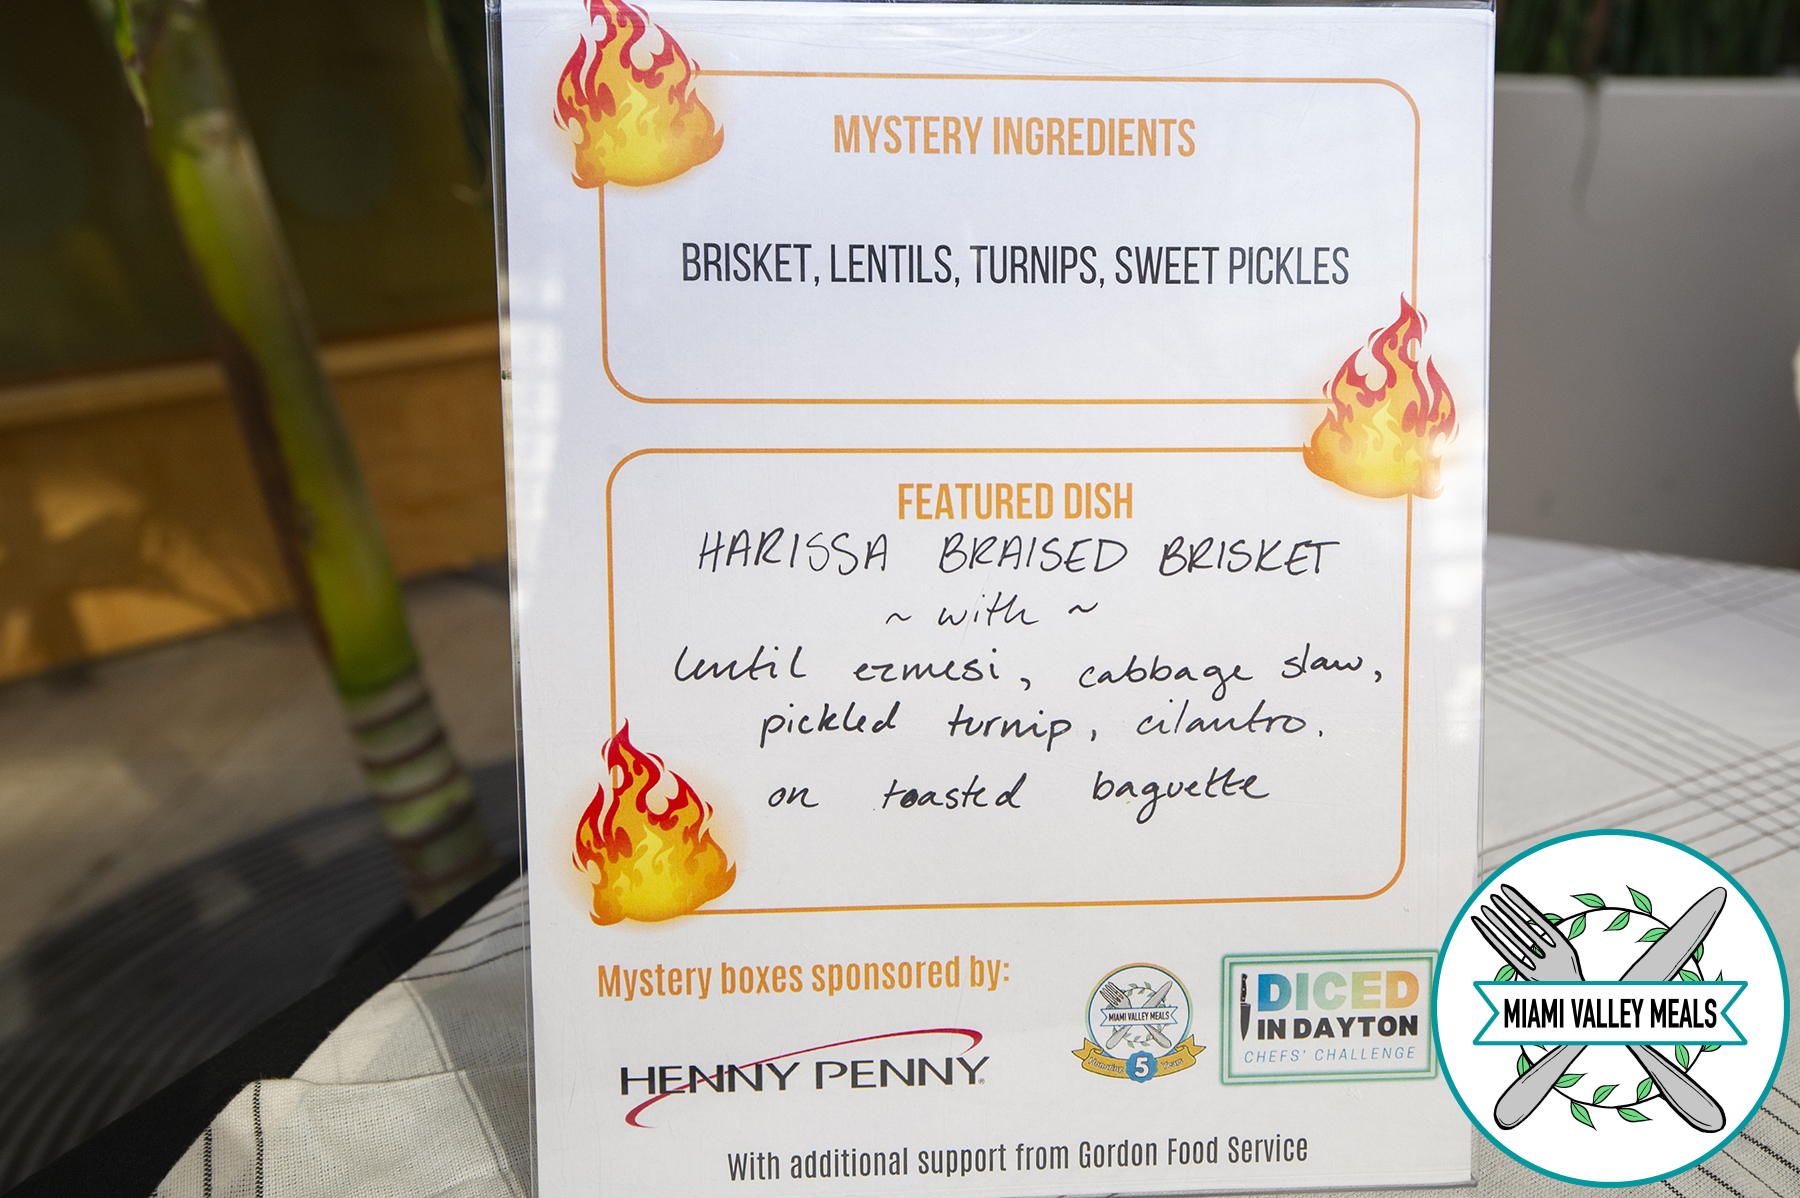 MYSTERY INGREDIENTS
BRISKET, LENTILS, TURNIPS, SWEET PICKLES
FEATURED DISH
HARISSA BRAISED BRISKET
~ with ~
lentil ezmesi, cabbage slaw,
pickled turnip, cilantro.
on toasted baguette
Mystery boxes sponsored by:
HENNY PENNY®
MIAMI VALLEY MEALS
Honoring 5 Years
DICED
IN DAYTON
CHEFS' CHALLENGE
With additional support from Gordon Food Service
MIAMI VALLEY MEALS